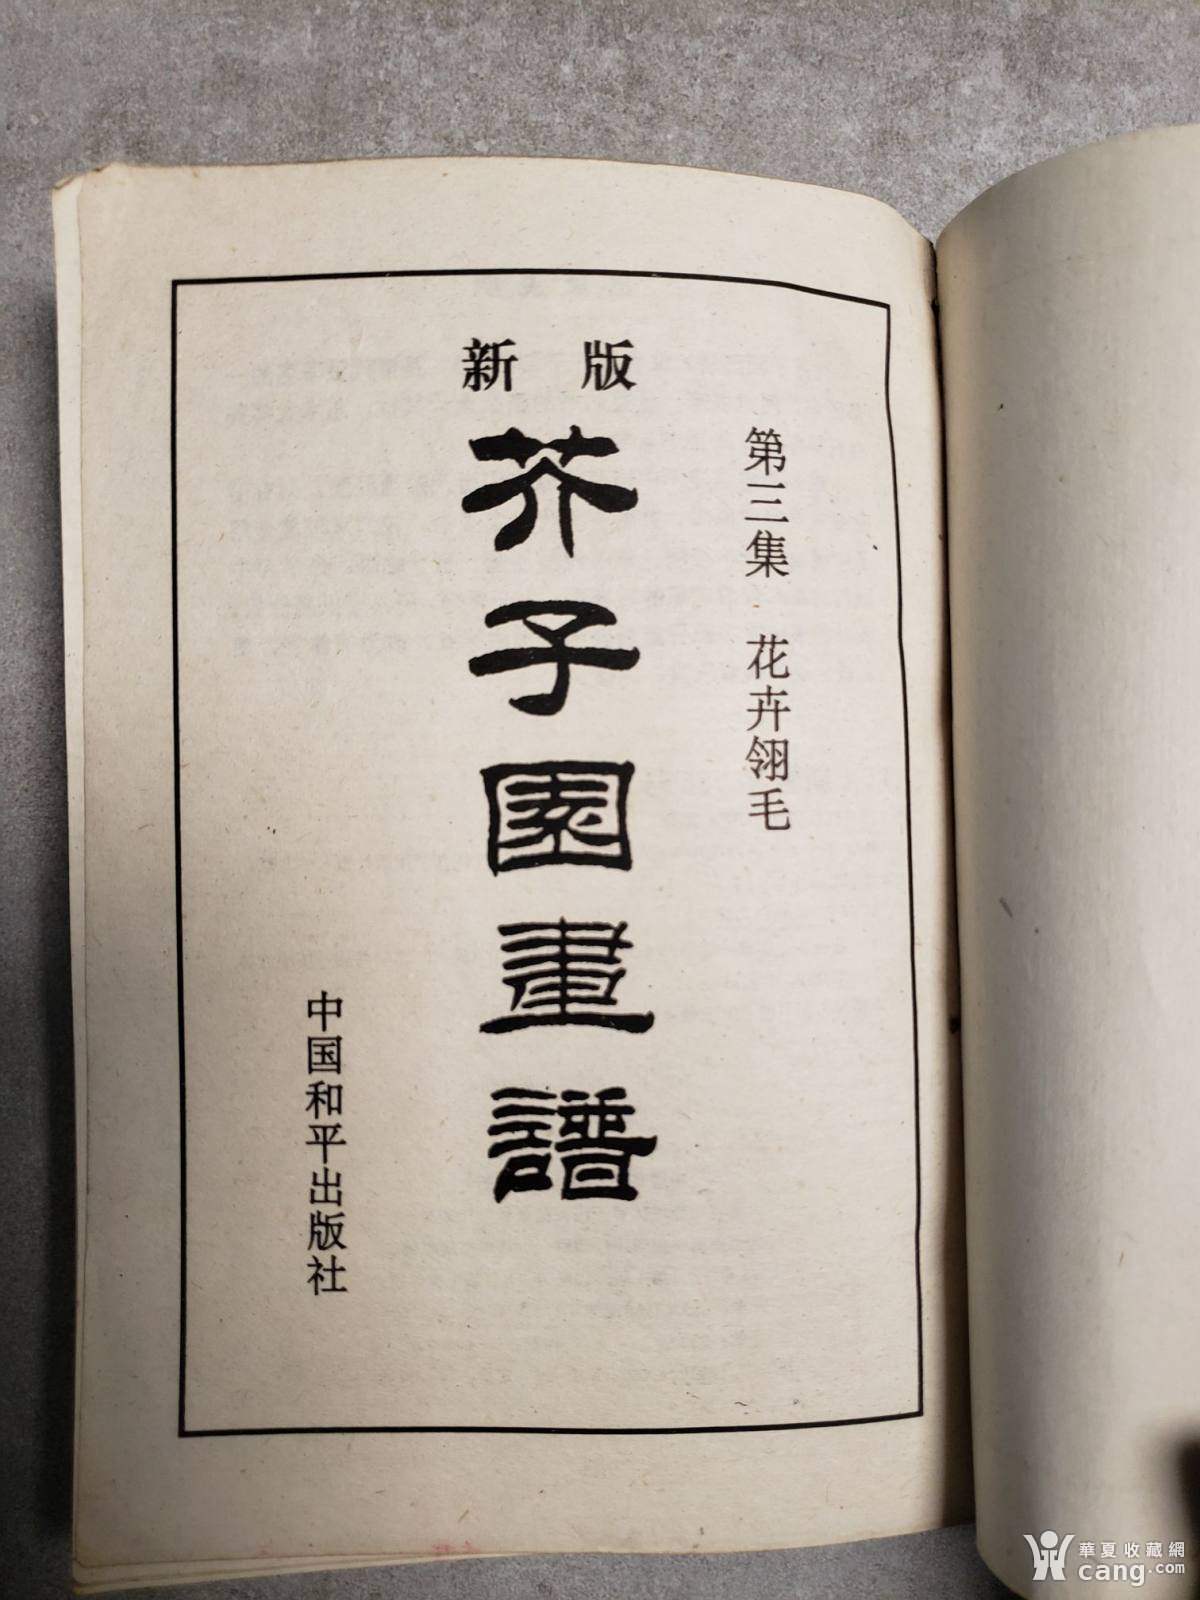 新版
芥子園畫譜
第三集 花卉翎毛
中国和平出版社
華夏收藏網
cang.com